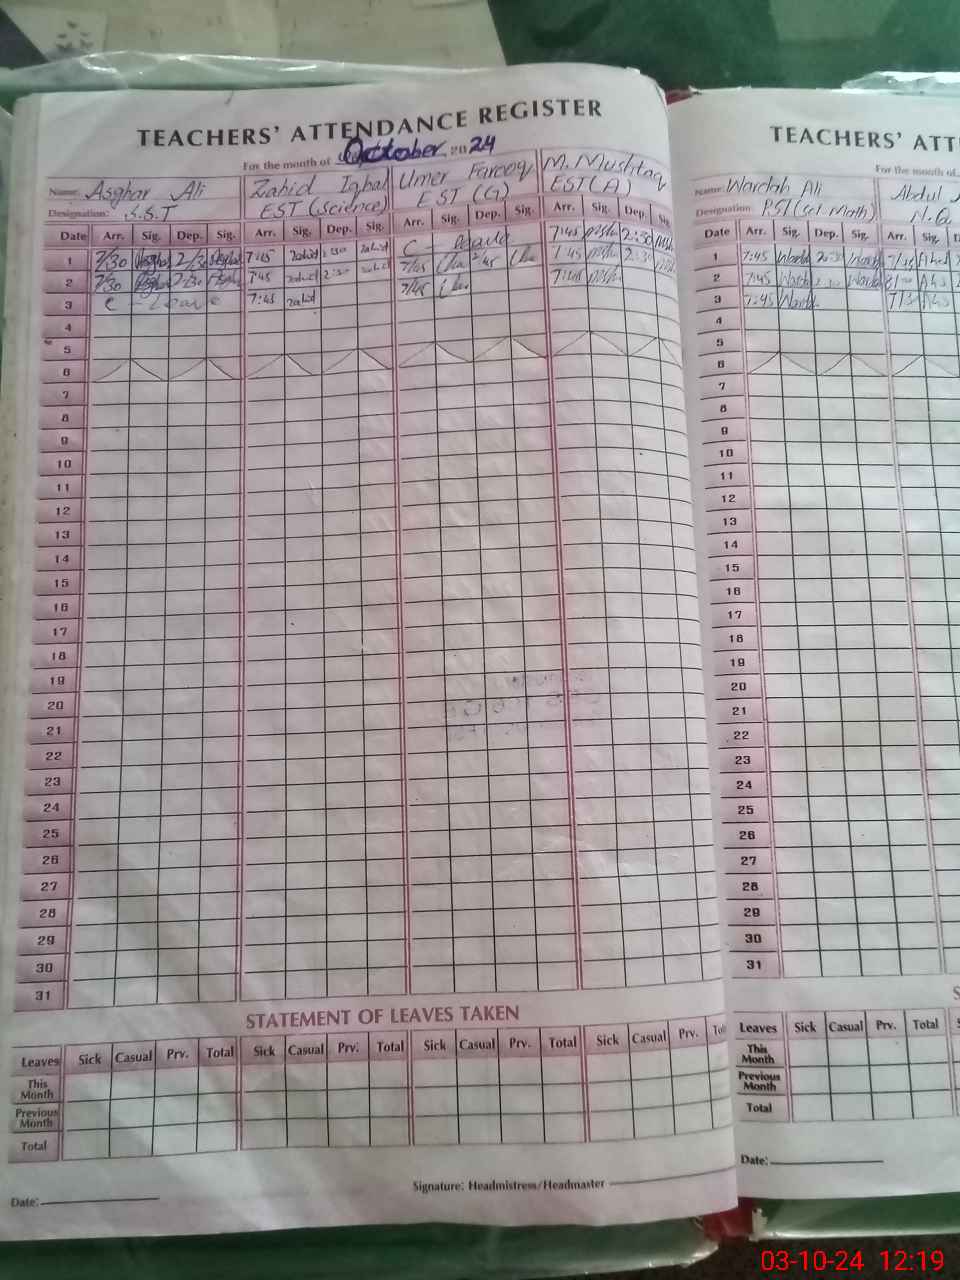 TEACHERS' ATTENDANCE REGISTER
For the month of October 2024
Name: Asghar Ali Zahid Iqbal Umer Farooq M. Mushtaq
Designation: S.S.T EST (Science) EST (G) EST (A)
Date Arr. Sig. Dep. Sig. Arr. Sig. Dep. Sig. Arr. Sig. Dep. Sig. Arr. Sig. Dep. Sig
1 7/30 Asghar 2/30 Asghar 7:45 zahid 2:30 zahid C - Leave 7:45 2:30
2 7/30 Asghar 2/30 Asghar 7:45 zahid 2:30 zahid 7/45 2/45 7:45 2:30
3 C - Leave 7:45 zahid 7/45 7:45
4
5
6
7
8
9
10
11
12
13
14
15
16
17
18
19
20
21
22
23
24
25
26
27
28
29
30
31
STATEMENT OF LEAVES TAKEN
Leaves Sick Casual Prv. Total Sick Casual Prv. Total Sick Casual Prv. Total Sick Casual Prv.
This Month
Previous Month
Total
Date:
Signature: Headmistress/Headmaster
TEACHERS'
For the month of
Name: Wardah Ali Abdul
Designation: PST (Sci. Math)
Date Arr. Sig. Dep. Sig. Arr. Sig.
1 7:45 Wardah 2:30 Wardah
2 7:45 Wardah Wardah
3 7:45 Wardah
4
5
6
7
8
9
10
11
12
13
14
15
16
17
18
19
20
21
22
23
24
25
26
27
28
29
30
31
Leaves Sick Casual Prv. Total
This Month
Previous Month
Total
Date:
03-10-24 12:19